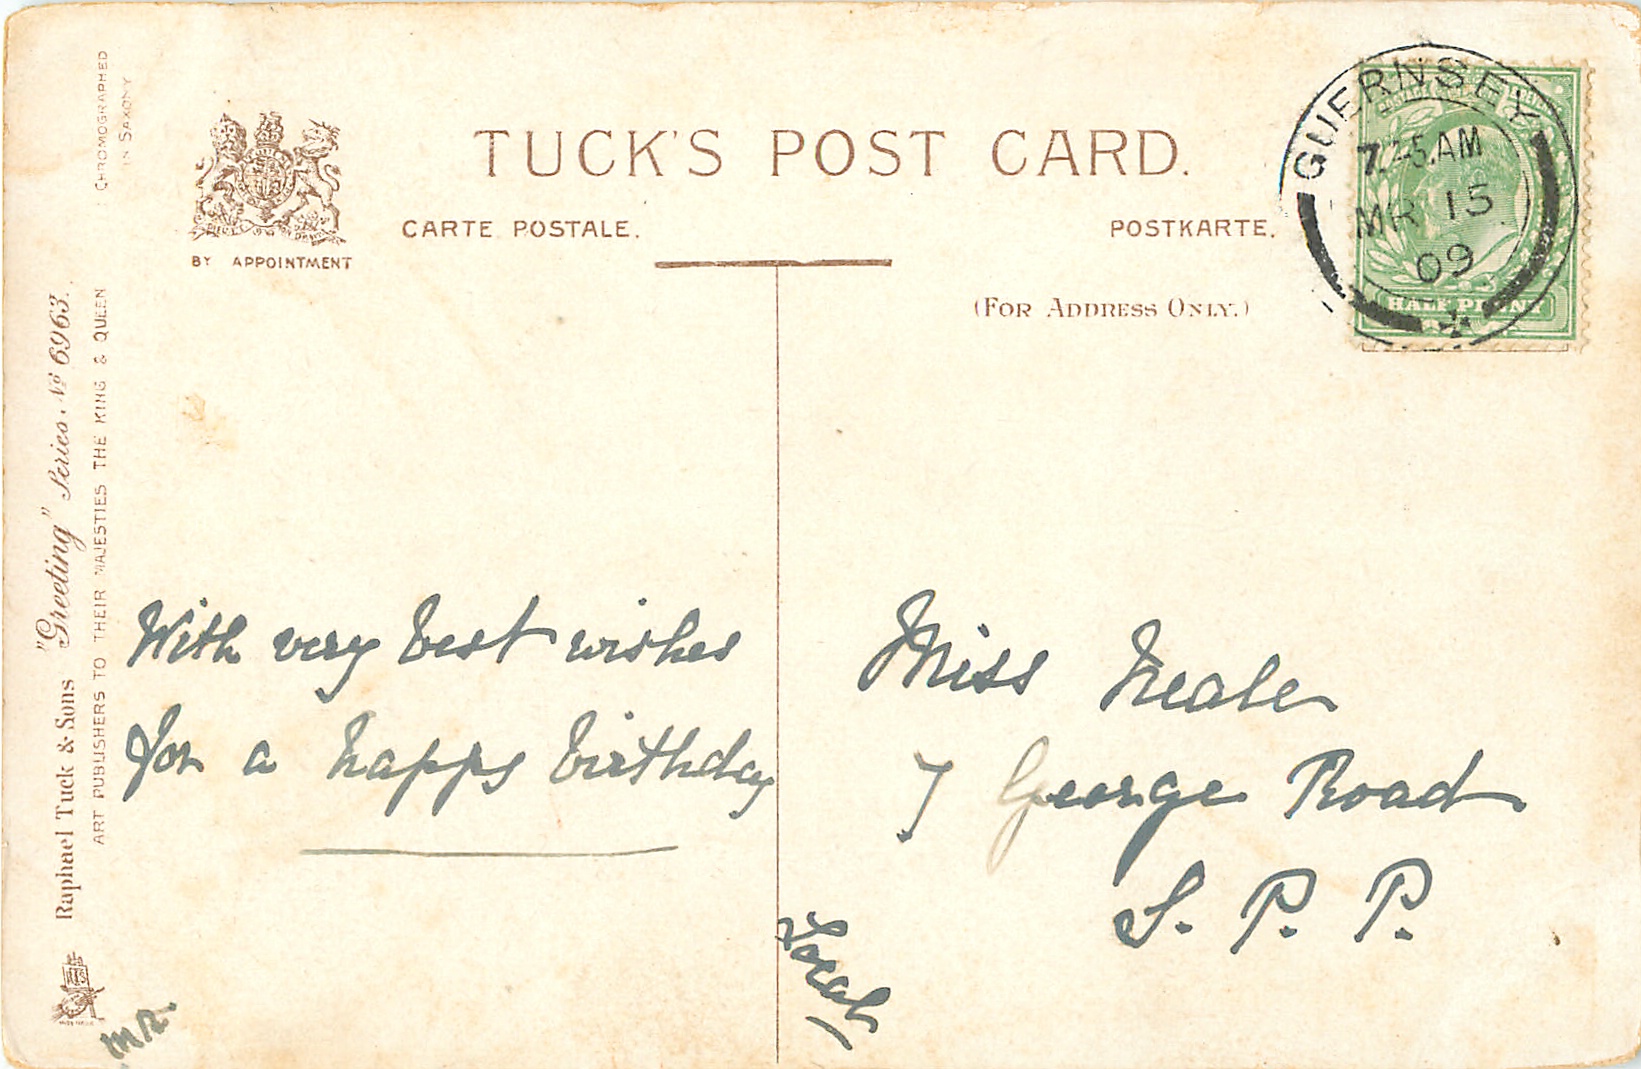 CHROMOGRAPHED
IN SAXONY
BY APPOINTMENT
TUCK'S POST CARD.
CARTE POSTALE.
POSTKARTE.
(FOR ADDRESS ONLY.)
GUERNSEY
AM
MR 15
09
HALF PENNY
Raphael Tuck & Sons "Greeting" Series. No 6963.
ART PUBLISHERS TO THEIR MAJESTIES THE KING & QUEEN
With very best wishes
for a happy birthday
M R.
Miss Neale
7 George Road
S. P. P.
Local